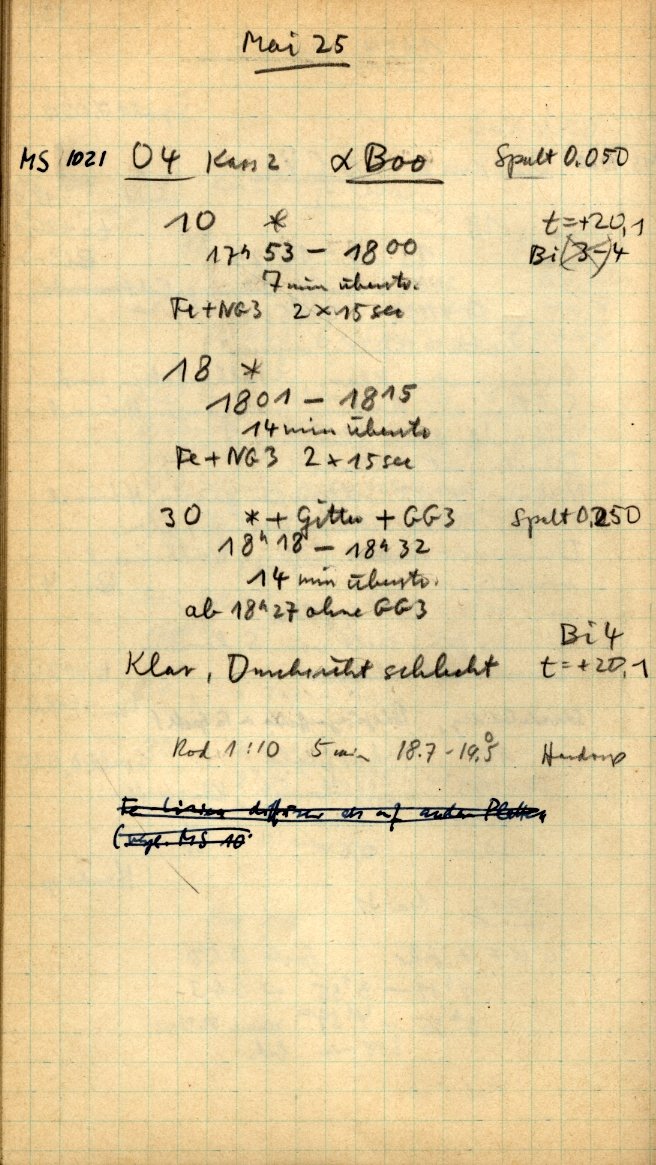 Mai 25
MS 1021 O4 Kass 2 α Boo Spalt 0.050
10 * t=+20,1
17h 53 – 18 00 Bi(3-)4
7 min überstr.
Fe+NG3 2×15 sec
18 *
18 01 – 18 15
14 min überstr.
Fe+NG3 2×15 sec
30 * + Gitter + GG3 Spalt 0,250
18h 18 – 18h 32
14 min überstr.
ab 18h 27 ohne GG3
Bi 4
Klar, Durchsicht schlecht t=+20,1
Rod 1:10 5 min 18.7–19.5°
Fe Linien diffuser als auf anderen Platten
(vgl. MS 10